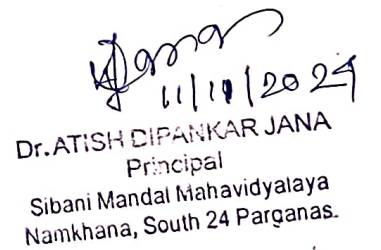 11/11/2024
Dr. ATISH DIPANKAR JANA
Principal
Sibani Mandal Mahavidyalaya
Namkhana, South 24 Parganas.